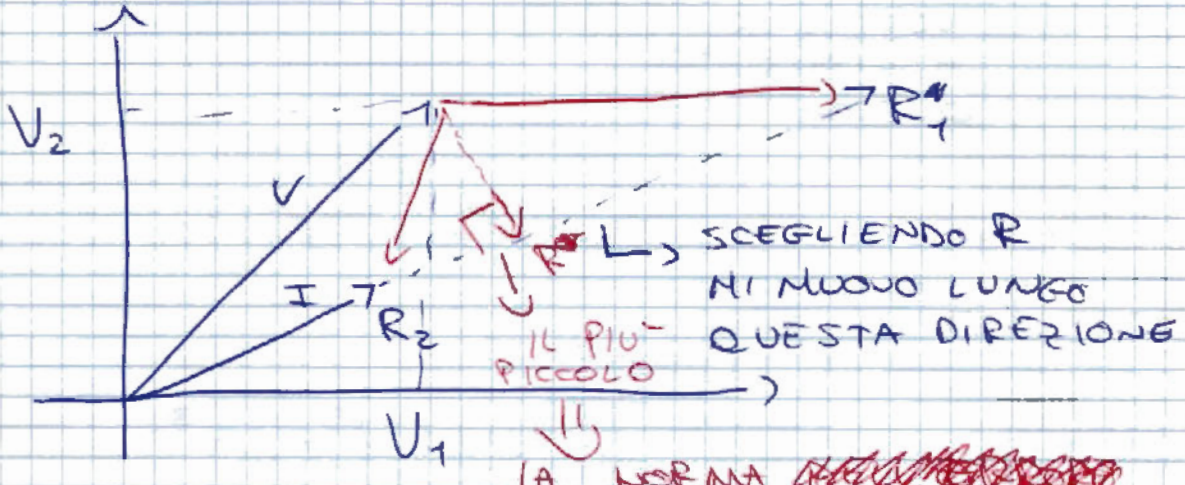 V₂
V
R₁
I
R₂
R
SCEGLIENDO R
MI MUOVO LUNGO
QUESTA DIREZIONE
IL PIU'
PICCOLO
V₁
LA NORMA